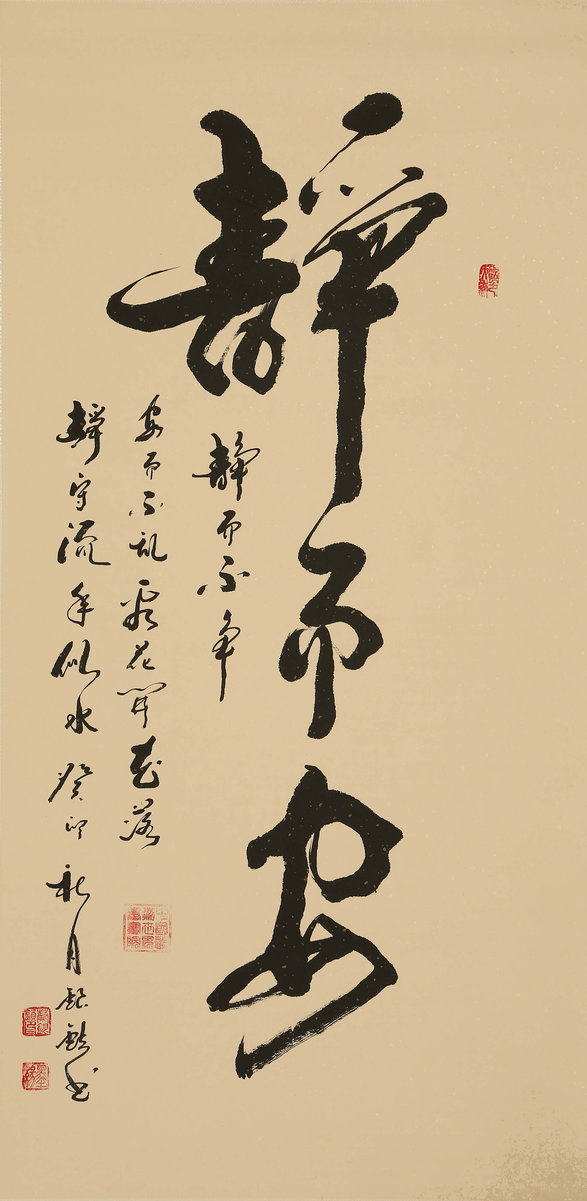 靜而安
靜而不争
安而不乱看花開花落
靜守流年似水癸卯秋月
書